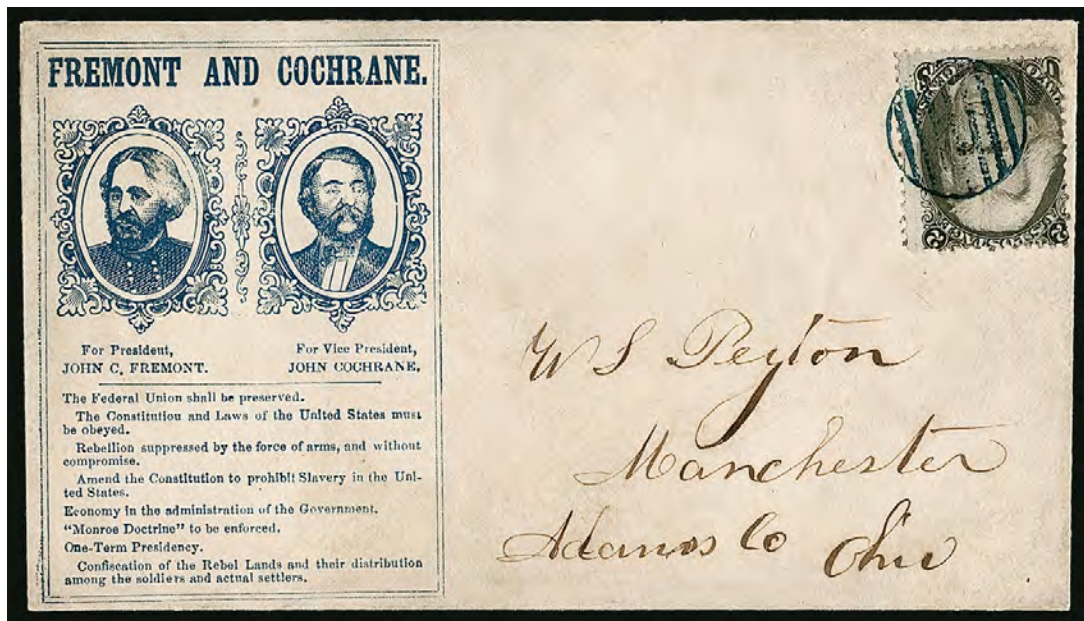 FREMONT AND COCHRANE.
For President,
JOHN C. FREMONT.
For Vice President,
JOHN COCHRANE.
The Federal Union shall be preserved.
The Constitution and Laws of the United States must
be obeyed.
Rebellion suppressed by the force of arms, and without
compromise.
Amend the Constitution to prohibit Slavery in the Uni-
ted States.
Economy in the administration of the Government.
"Monroe Doctrine" to be enforced.
One-Term Presidency.
Confiscation of the Rebel Lands and their distribution
among the soldiers and actual settlers.
W S Peyton
Manchester
Adams Co Ohio